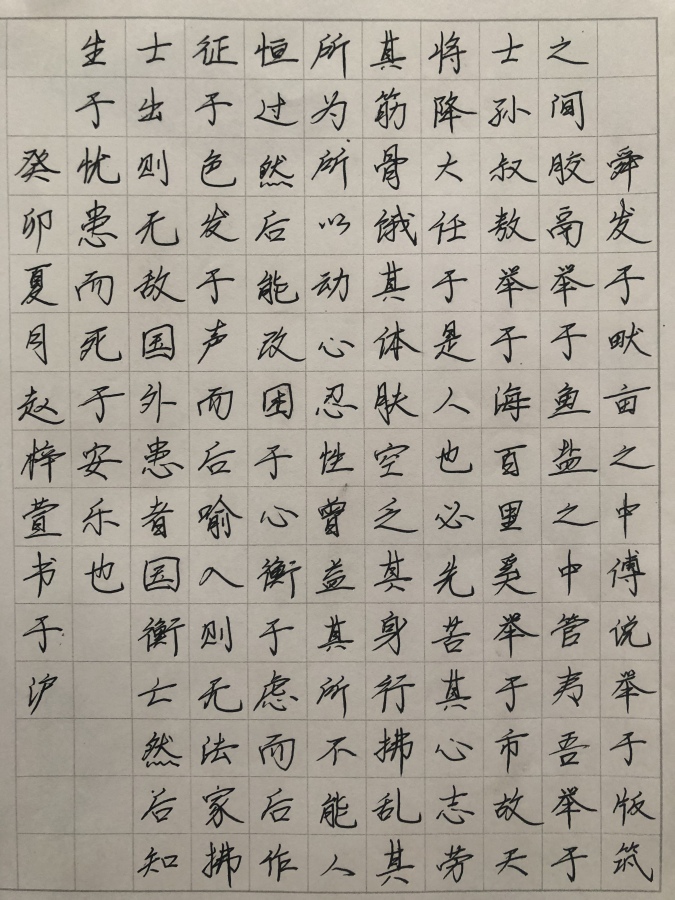 舜发于畎亩之中傅说举于版筑
之间胶鬲举于鱼盐之中管夷吾举于
士孙叔敖举于海百里奚举于市故天
将降大任于是人也必先苦其心志劳
其筋骨饿其体肤空乏其身行拂乱其
所为所以动心忍性曾益其所不能人
恒过然后能改困于心衡于虑而后作
征于色发于声而后喻入则无法家拂
士出则无敌国外患者国衡亡然后知
生于忧患而死于安乐也
癸卯夏月赵梓萱书于沪